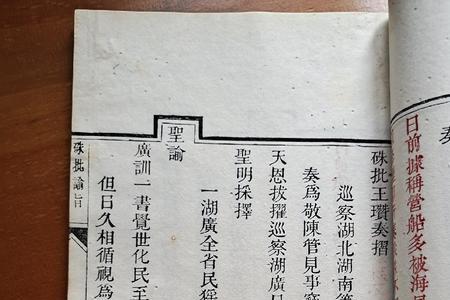 奏
日前據稱營船多被海
硃批王瓚奏摺
巡察湖北湖南
奏為敬陳管見事
天恩拔擢巡察湖廣
聖明採擇
一湖廣全省民
聖諭
廣訓一書覺世化民至
但日久相循視為
硃批諭旨